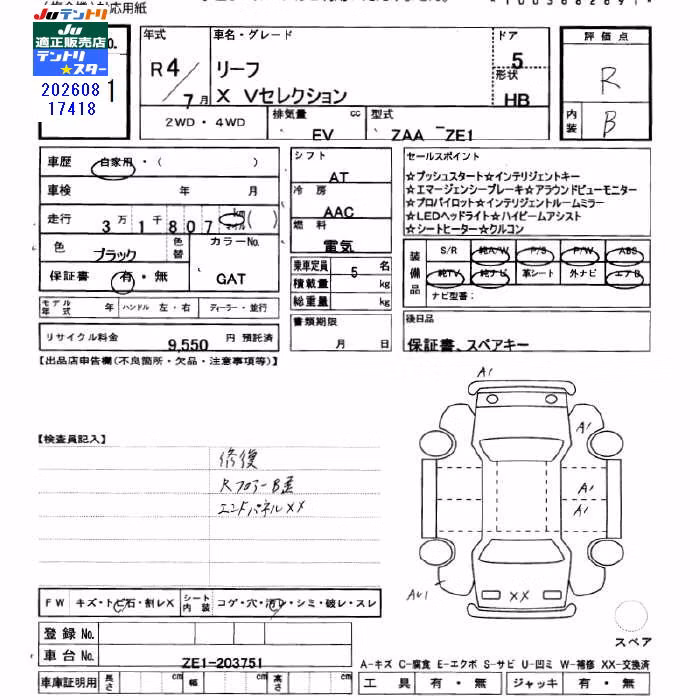 対応用紙
JUテントリ
適正販売店
テントリ
★スター
202608
17418
No.
1
年式
R4/7月
車名・グレード
リーフ
X Vセレクション
ドア
5
形状
HB
評価点
R
内装
B
2WD・4WD
排気量 EV cc
型式 ZAA ZE1
車歴 自家用・( )
車検 年 月
走行 3万1千807 km マイル ( )
色 ブラック 色替
カラーNo. GAT
保証書 有・無
シフト AT
冷房 AAC
燃料 電気
乗車定員 5 名
積載量 kg
総重量 kg
セールスポイント
☆プッシュスタート☆インテリジェントキー
☆エマージェンシーブレーキ☆アラウンドビューモニター
☆プロパイロット☆インテリジェントルームミラー
☆LEDヘッドライト☆ハイビームアシスト
☆シートヒーター☆クルコン
装備品 S/R 純A/W P/S P/W ABS
純TV 純ナビ 革シート 外ナビ エアB
ナビ型番:
モデル年式 年 ハンドル 左・右 ディーラー・並行
リサイクル料金 9,550 円 預託済
書類期限 月 日
後日品
保証書、スペアキー
【出品店申告欄(不良箇所・欠品・注意事項等)】
【検査員記入】
修復
Rフロアー B歪
エンドパネルXX
A1
A1
A1
A1
AU1
XX
FW キズ・トビ石・割レX シート内装 コゲ・穴・汚レ・シミ・破レ・スレ
登録No.
車台No. ZE1-203751
スペア
A-キズ C-腐食 E-エクボ S-サビ U-凹ミ W-補修 XX-交換済
車庫証明用 長さ cm 幅 cm 高さ cm 工具 有・無 ジャッキ 有・無